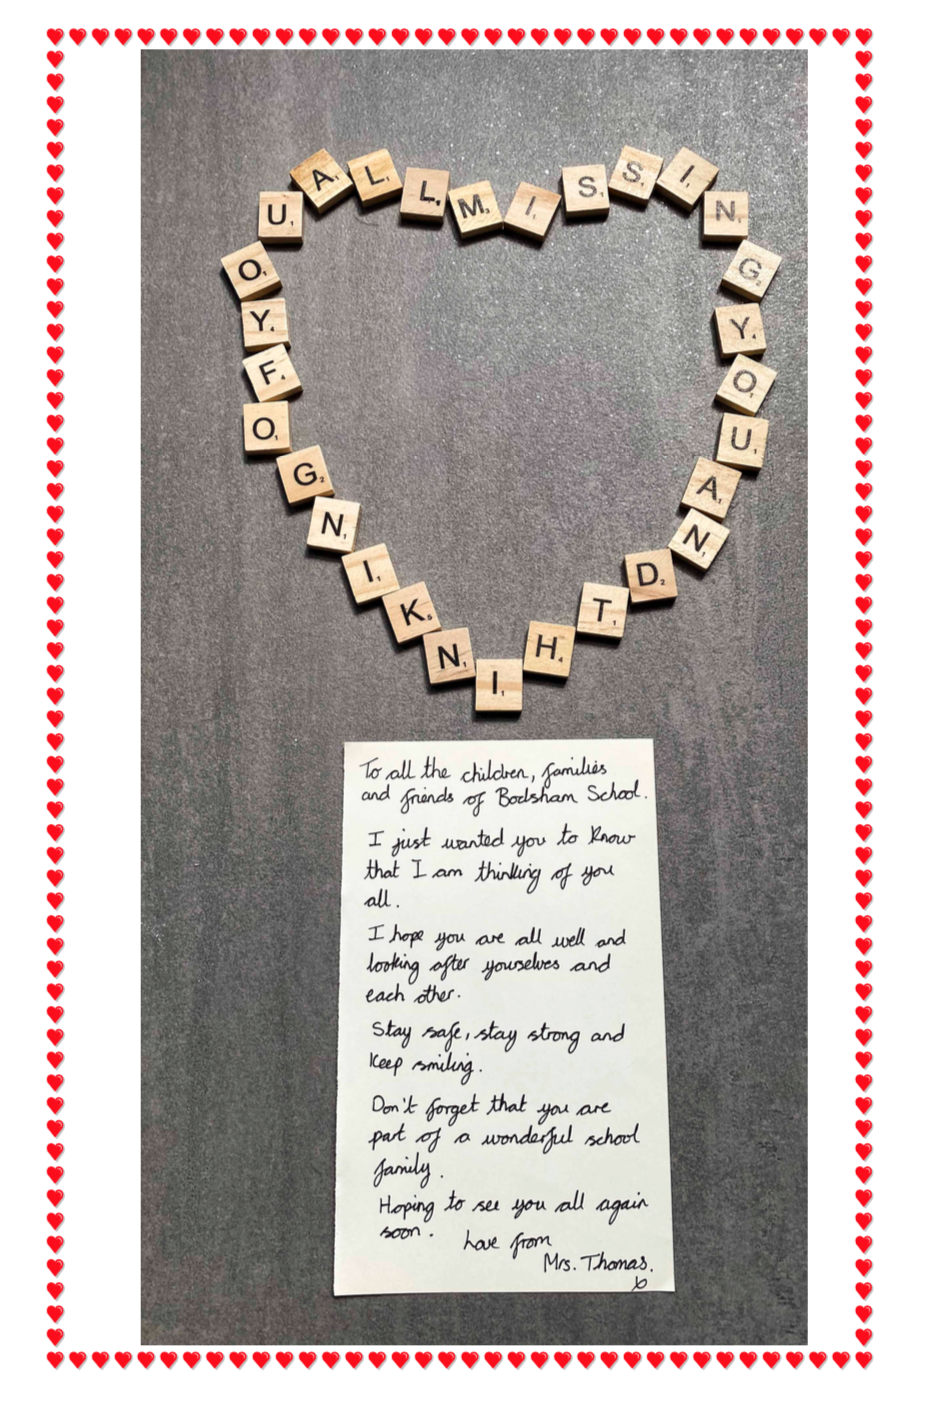 MISSING YOU AND THINKING OF YOU ALL
To all the children, families
and friends of Bodsham School.
I just wanted you to know
that I am thinking of you
all.
I hope you are all well and
looking after yourselves and
each other.
Stay safe, stay strong and
keep smiling.
Don't forget that you are
part of a wonderful school
family.
Hoping to see you all again
soon.
Love from
Mrs. Thomas.
x